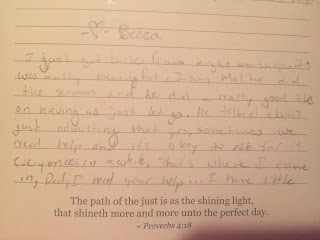 -♡- Becca
I just got back from night worship and it
was really meaningful, Jason Molter did
the sermon and he did a really good
on having us just let go. He talked about
just admitting that yes, sometimes we
need help and it's okay to ask for it
every once in a while. That's where I come
in, Dad, I need your help... I have little
The path of the just is as the shining light,
that shineth more and more unto the perfect day.
– Proverbs 4:18